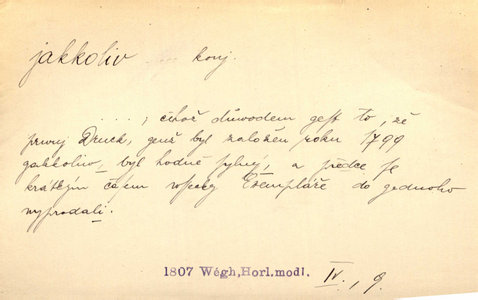 jakkoliv konj.
. . . . , čehož důwodem gest to, že
prwnj Druck, genž byl založen roku 1799
gakkoliv, byl hodně sylný, a předce se
krátkým čásem wssecky Exempláře do gednoho
wyprodali.
1807 Wégh,Horl.modl. IV., 9.